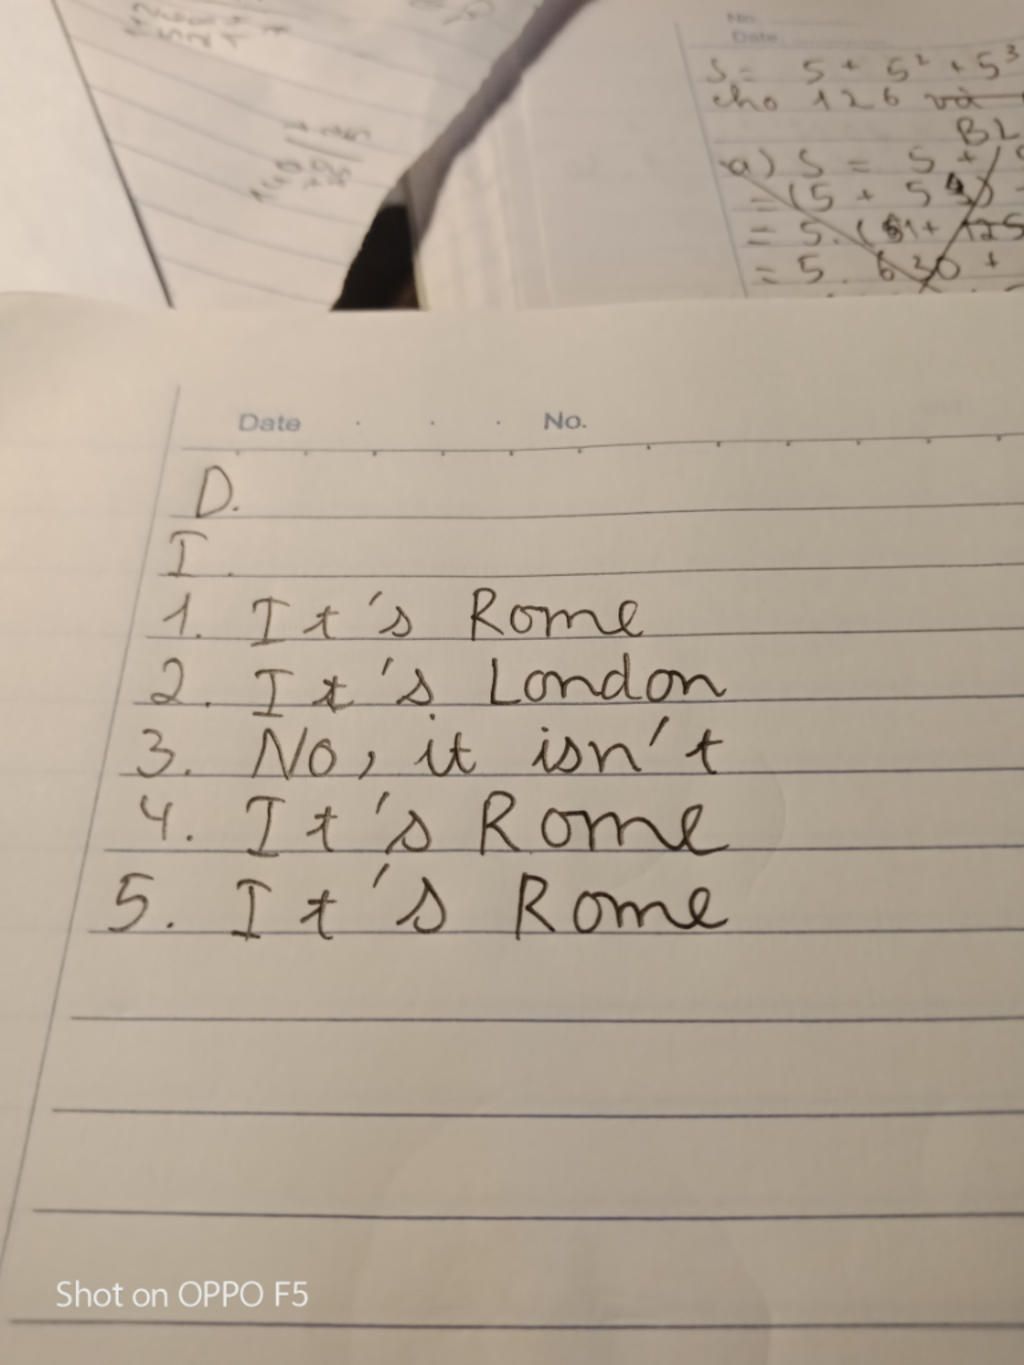 No.
Date
S = 5 + 5² + 5³
cho 126 và
a) S = 5 +
= (5 +
= 5. (
= 5. 630 +
Date . . . No.
D.
I.
1. It's Rome
2. It's London
3. No, it isn't
4. It's Rome
5. It's Rome
Shot on OPPO F5